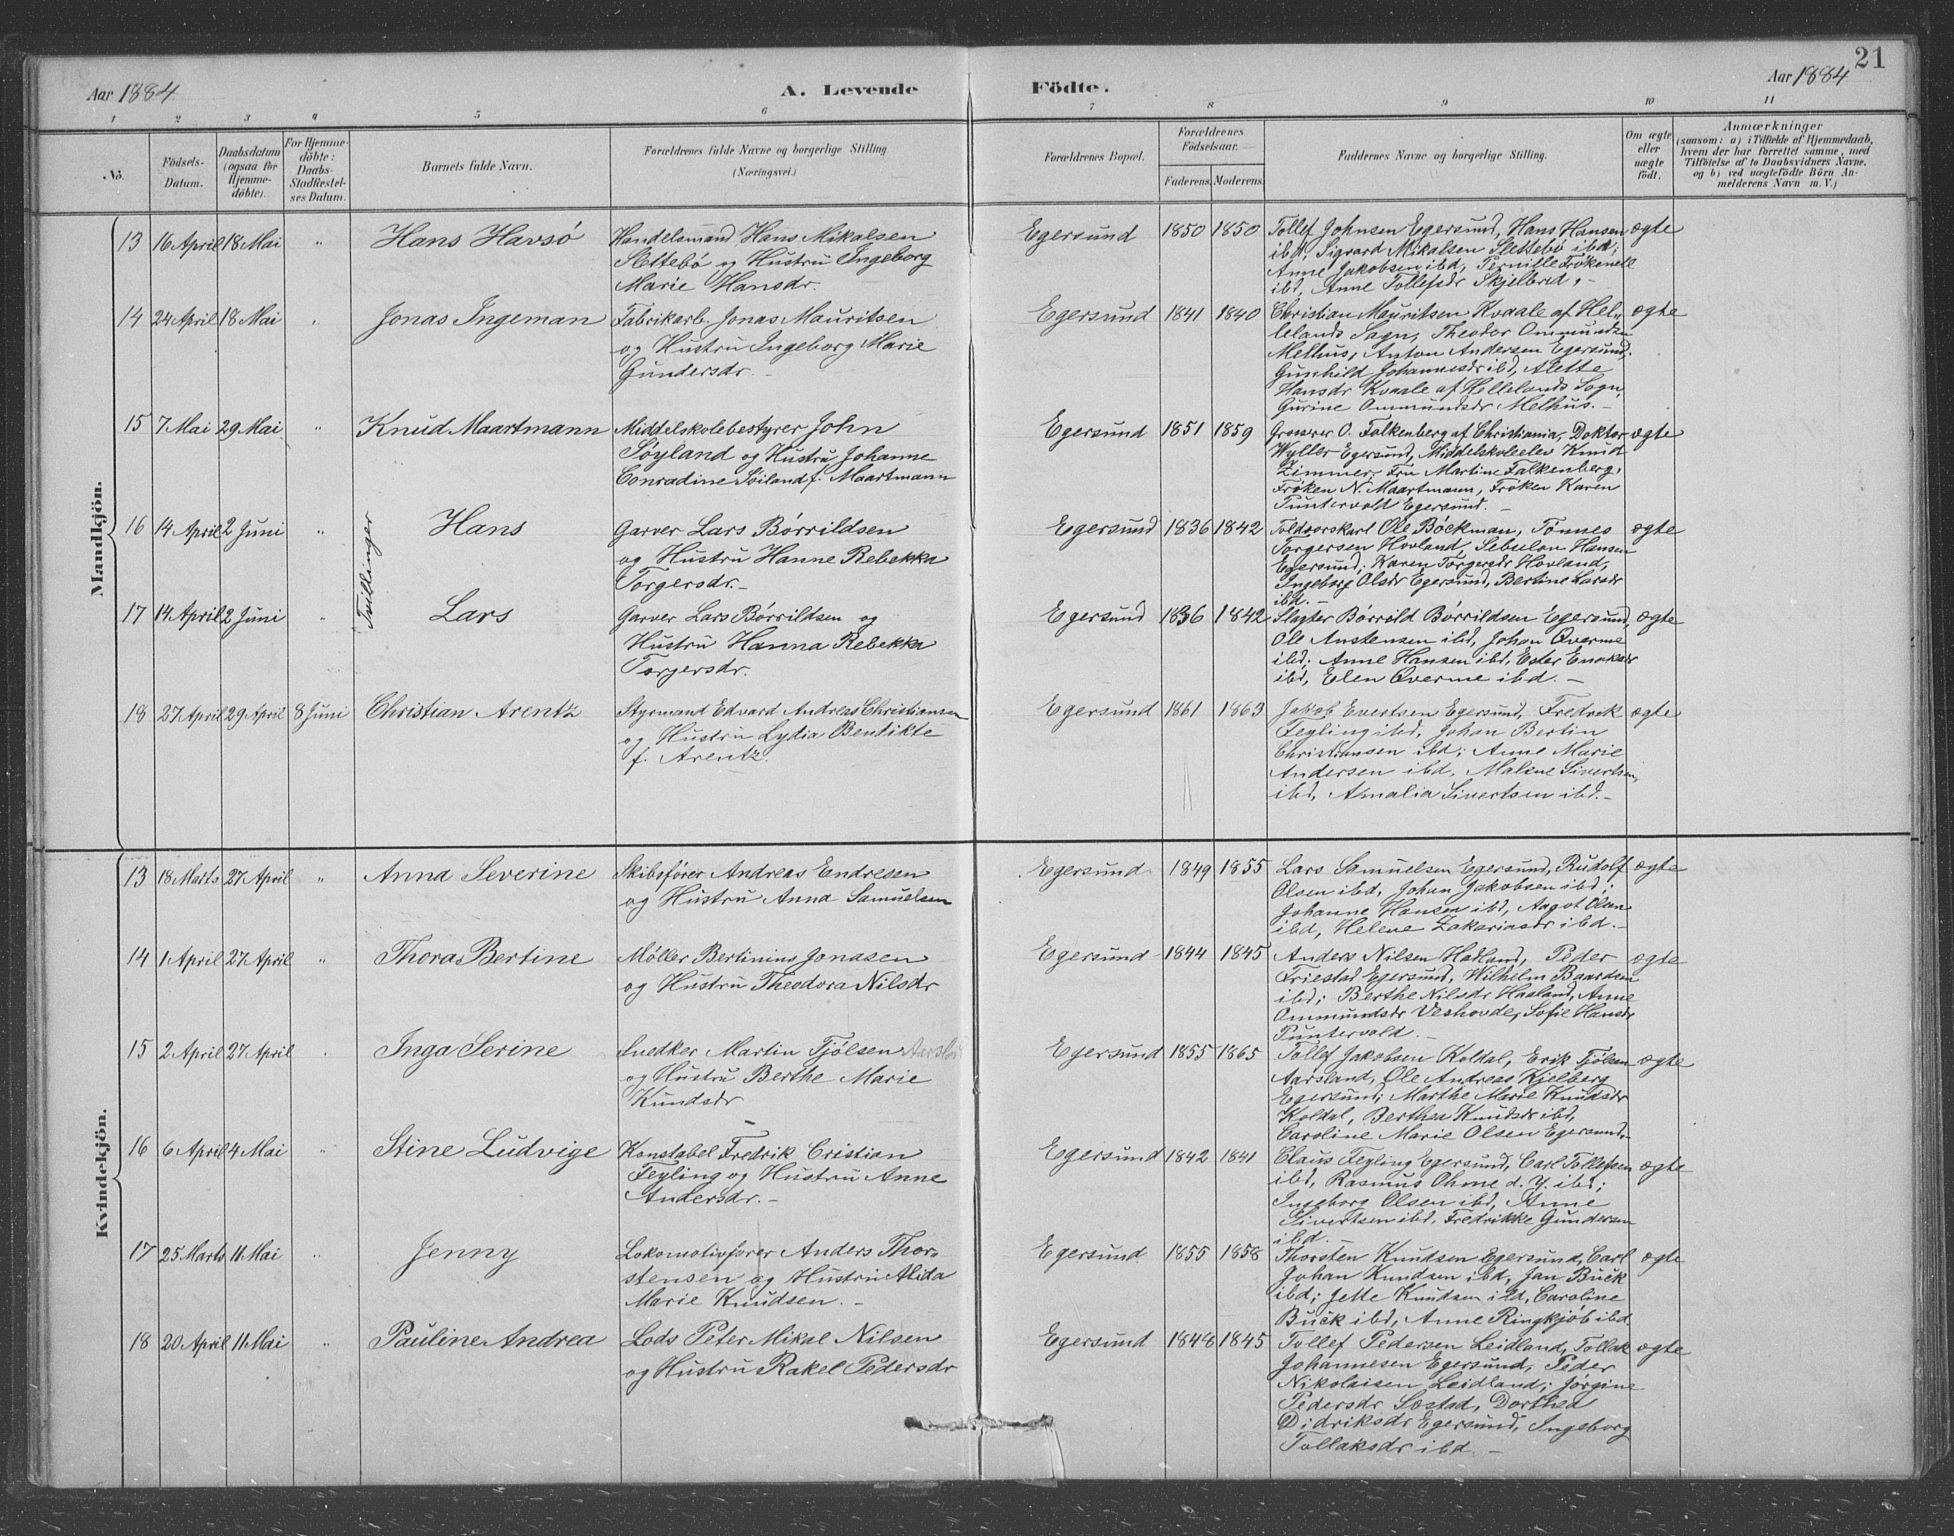 21
Aar 1884 A. Levende Födte. Aar 1884
1 2 3 4 5 6 7 8 9 10 11
No.
Födsels-
Datum.
Daabsdatum
(ogsaa for
Hjemme-
döbte).
For Hjemme-
döbte:
Daabs-
Stadfæstel-
ses Datum.
Barnets fulde Navn.
Forældrenes fulde Navne og borgerlige Stilling.
(Næringsvei.)
Forældrenes Bopæl.
Forældrenes
Födselsaar.
Faderens. Moderens.
Faddernes Navne og borgerlige Stilling.
Om ægte
eller
uægte
födt.
Anmærkninger
(saasom: a) i Tilfælde af Hjemmedaab,
hvem der har forrettet samme, med
Tilföielse af to Daabsvidners Navne.
og b) ved uægtefödte Börn An-
melderens Navn m. V.)
Mandkjön.
13 16 April 18 Mai " Hans Havsö
Handelsmand Hans Mikalsen
Slettebö og Hustru Ingeborg
Marie Hansdr.
Egersund 1850 1850
Tollef Johnsen Egersund, Hans Hansen
ibd, Sigvard Mikalsen Slettebö ibd;
Anne Jakobsen ibd, Pernille
ibd, Anne Tollefsdr Skjelbred, -
ægte
14 24 April 18 Mai " Jonas Ingeman
Fabrikarb. Jonas Mauritsen
og Hustru Ingeborg Marie
Gundersdr. -
Egersund 1841 1840
Christian Mauritsen Kvaale af Hel-
lelands Sogn, Theodor Ommundsen
Melhus, Anton Andersen Egersund.
Gunhild Johannesdr ibd, Alette
Hansdr Kvaale af Hellelands Sogn,
Gurine Ommundsdr Melhus. -
ægte
15 7 Mai 29 Mai " Knud Maartmann
Middelskolebestyrer John
Söyland og Hustru Johanne
Conradine Söiland f. Maartmann
Egersund 1851 1859
Grosserer O. Falkenberg af Christiania, Doktor
Wyller Egersund, Middelskoleelev Knud
Zimmer, Fru Martine Falkenberg,
Fröken N. Maartmann, Fröken Karen
Puntervold Egersund. -
ægte
16 14 April 2 Juni " Tvillinger Hans
Garver Lars Börrildsen
og Hustru Hanne Rebekka
Torgersdr. -
Egersund 1836 1842
Toldvorskarl Ole Böckman, Tönnes
Torgersen Hovland, Sebulon Hansen
Egersund; Karen Torgersdr Hovland,
Ingeborg Olsdr Egersund, Bertine Larsdr
ibd. -
ægte
17 14 April 2 Juni " Lars
Garver Lars Börrildsen og
Hustru Hanna Rebekka
Torgersdr.
Egersund 1836 1842
Slagter Börrild Börrildsen Egersund,
Ole Austensen ibd, Johan Överme
ibd; Anne Hansen ibd, Ester Enoksdr
ibd, Elen Överme ibd. -
ægte
18 27 April 29 April 8 Juni Christian Arentz
Styrmand Edvard Andreas Christiansen
og Hustru Lydia Bendikte
f. Arentz.
Egersund 1861 1863
Jakob Evertsen Egersund, Fredrik
Feyling ibd, Johan Bertin
Christiansen ibd; Anne Marie
Andersen ibd, Malene Sivertsen,
ibd, Amalia Sivertsen ibd. -
ægte
Kvindekjön.
13 18 Marts 27 April " Anna Severine
Skibsförer Andreas Endresen
og Hustru Anna Samuelsen
Egersund 1849 1855
Lars Samuelsen Egersund, Rudolf
Olsen ibd, Johan Jakobsen ibd;
Johanne Hansen ibd, Aagot Olsen
ibd, Helene Zakariasdr ibd. -
ægte
14 1 April 27 April " Thoras Bertine
Möller Bertinius Jonasen
og Hustru Theodora Nilsdr
Egersund 1844 1845
Anders Nilsen Hadland, Peder
Friestad Egersund, Wilhelm Baardsen
ibd; Berthe Nilsdr Hadland, Anne
Ommundsdr Veshovde, Sofie Hansdr
Puntervold. -
ægte
15 2 April 27 April " Inga Serine
Snedker Martin Tjölsen Aarsland
og Hustru Berthe Marie
Knudsdr
Egersund 1855 1865
Tollef Jakobsen Koldal, Erik Tjölsen
Aarsland, Ole Andreas Kjelberg
Egersund; Marthe Marie Knudsdr
Koldal, Berthea Knudsdr ibd,
Caroline Marie Olsen Egersund. -
ægte
16 6 April 4 Mai " Stine Ludvige
Konstabel Fredrik Cristian
Feyling og Hustru Anne
Andersdr. -
Egersund 1842 1841
Claus Feyling Egersund, Carl Tollefsen
ibd, Rasmus Ohme d. Y. ibd;
Ingeborg Olsen ibd, Anne
Sivertsen ibd, Fredrikke Gundersen
ibd. -
ægte
17 25 Marts 11 Mai " Jenny
Lokomotivförer Anders Thor-
stensen og Hustru Alida
Marie Knudsen. -
Egersund 1855 1858
Thorsten Knudsen Egersund, Carl
Johan Knudsen ibd, Jan Buck
ibd; Jette Knudsen ibd, Caroline
Buck ibd, Anne Ringkjöb ibd.
ægte
18 20 April 11 Mai " Pauline Andrea
Lods Peter Mikal Nilsen
og Hustru Rakel Pedersdr
Egersund 1848 1845
Tollef Pedersen Leidland, Tollak
Johannesen Egersund, Peder
Nikolaisen Leidland; Jörgine
Pedersdr Sæstad, Dorthea
Didriksdr Egersund, Ingeborg
Tollaksdr ibd. -
ægte